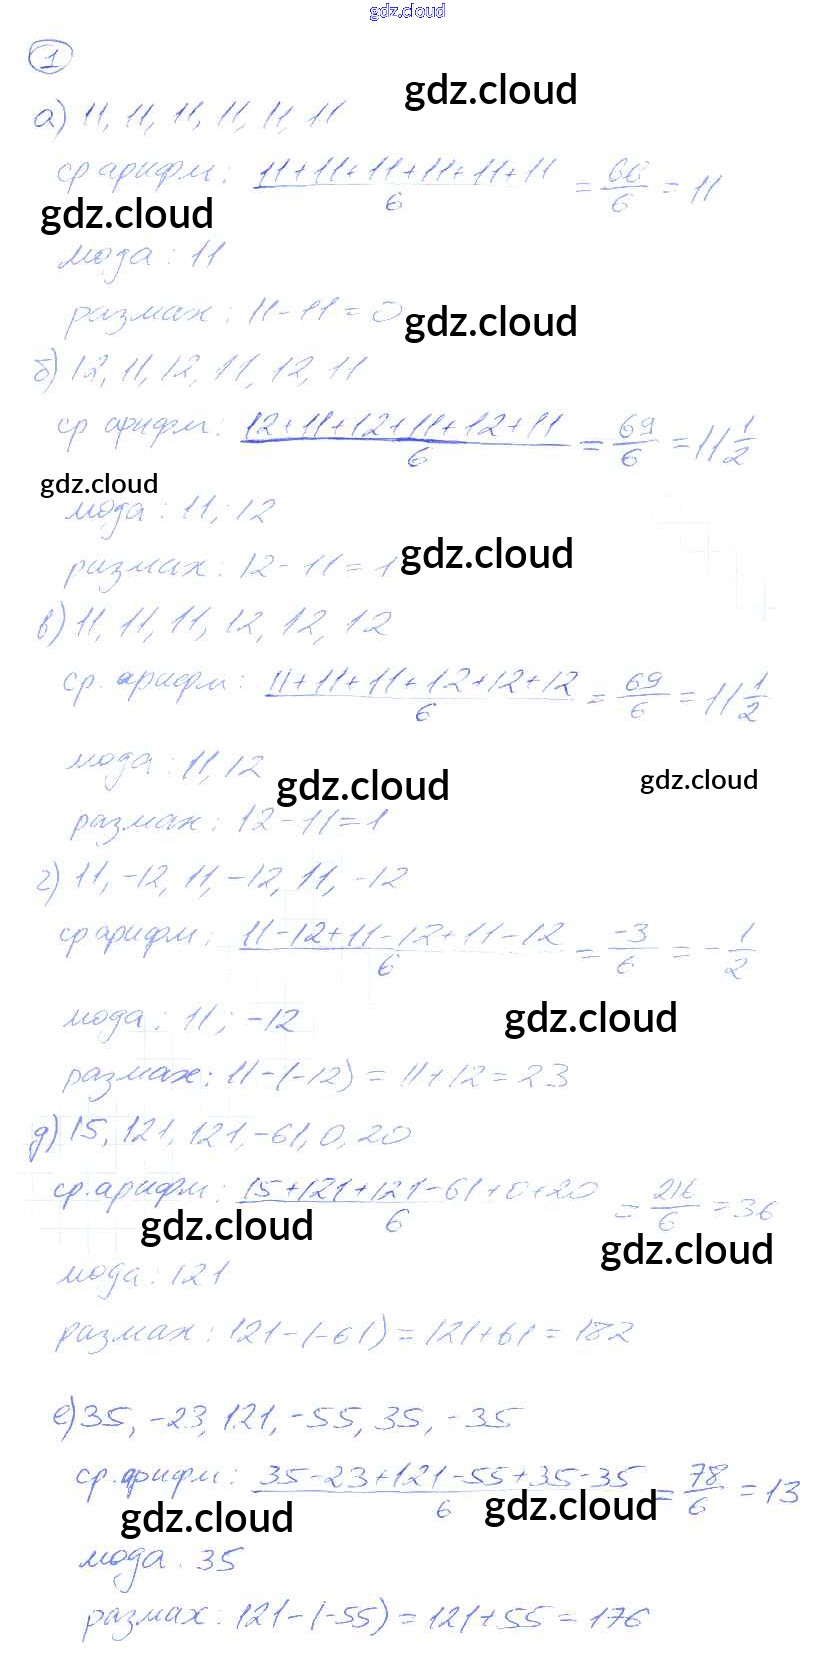 gdz.cloud
1
gdz.cloud
а) 11, 11, 11, 11, 11, 11
ср арифм: (11+11+11+11+11+11)/6 = 66/6 = 11
gdz.cloud
мода: 11
размах: 11-11=0
gdz.cloud
б) 12, 11, 12, 11, 12, 11
ср арифм: (12+11+12+11+12+11)/6 = 69/6 = 11 1/2
gdz.cloud
мода: 11; 12
размах: 12-11=1
gdz.cloud
в) 11, 11, 11, 12, 12, 12
ср. арифм: (11+11+11+12+12+12)/6 = 69/6 = 11 1/2
мода: 11, 12
gdz.cloud
gdz.cloud
размах: 12-11=1
г) 11, -12, 11, -12, 11, -12
ср арифм: (11-12+11-12+11-12)/6 = -3/6 = -1/2
мода: 11; -12
gdz.cloud
размах: 11-(-12) = 11+12=23
д) 15, 121, 121, -61, 0, 20
ср. арифм: (15+121+121-61+0+20)/6 = 216/6 = 36
gdz.cloud
gdz.cloud
мода: 121
размах: 121-(-61) = 121+61=182
е) 35, -23, 121, -55, 35, -35
ср. арифм: (35-23+121-55+35-35)/6 = 78/6 = 13
gdz.cloud
gdz.cloud
мода. 35
размах: 121-(-55) = 121+55=176